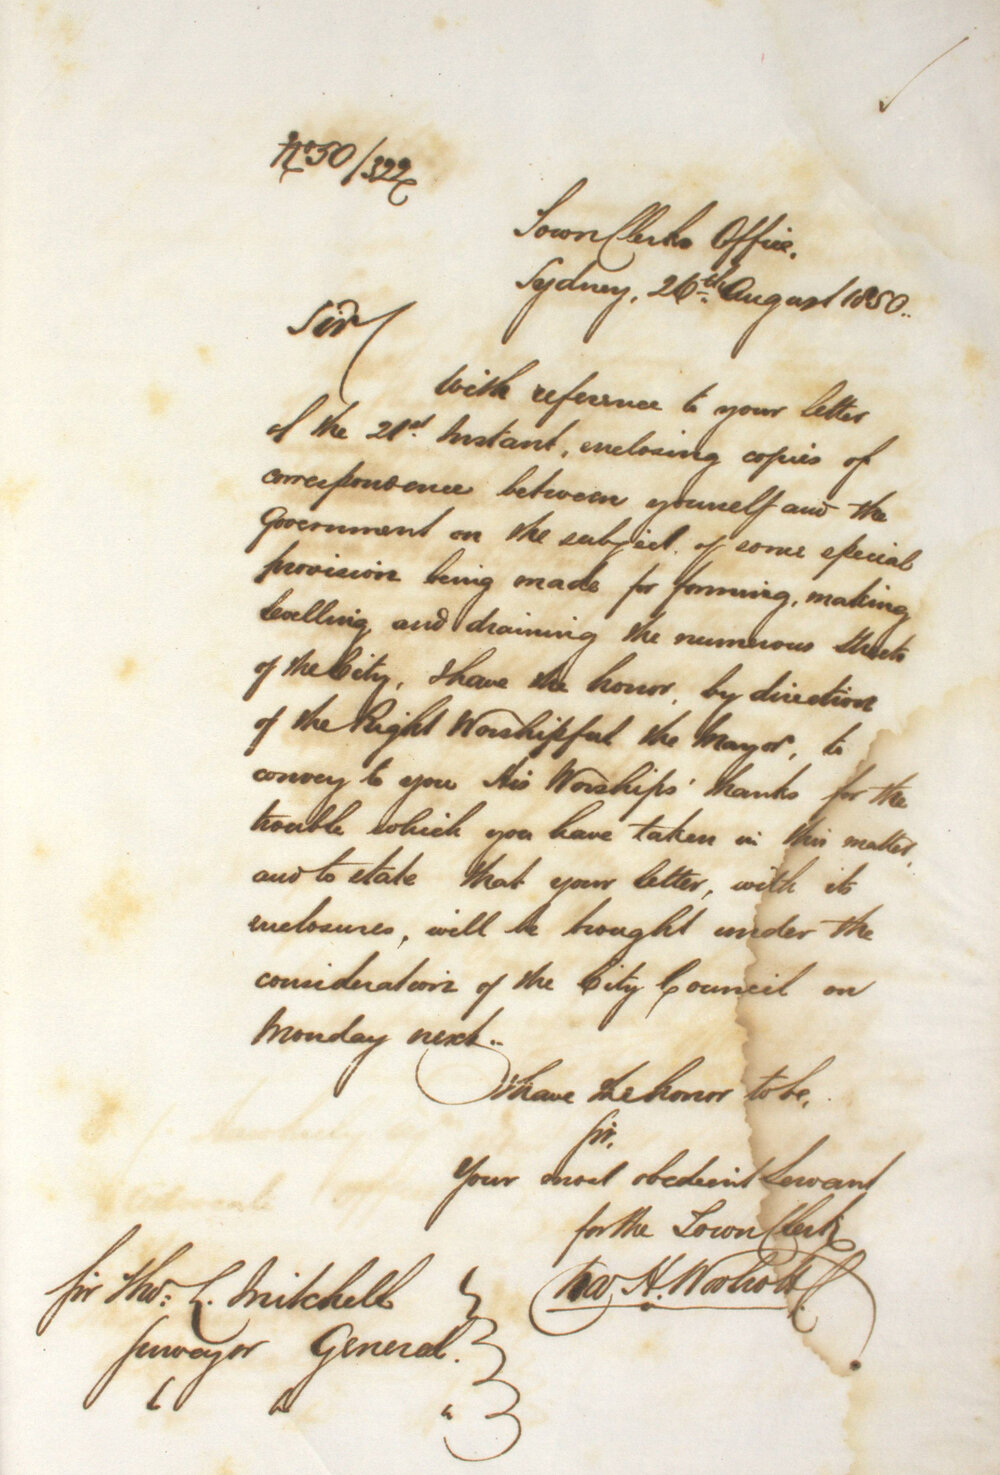 No 50/322
Town Clerks Office,
Sydney, 26th August 1850.
Sir
With reference to your letter
of the 21st Instant, enclosing copies of
correspondence between yourself and the
Government on the subject of some special
provision being made for forming, making
levelling, and draining the numerous streets
of the City, I have the honor, by direction
of the Right Worshipful the Mayor, to
convey to you His Worships' thanks for the
trouble which you have taken in this matter,
and to state that your letter, with its
enclosures, will be brought under the
consideration of the City Council on
Monday next.
I have the honor to be,
Sir,
Your most obedient Servant
for the Town Clerk
H. Woolcott
Sir Thos: L. Mitchell
Surveyor General.